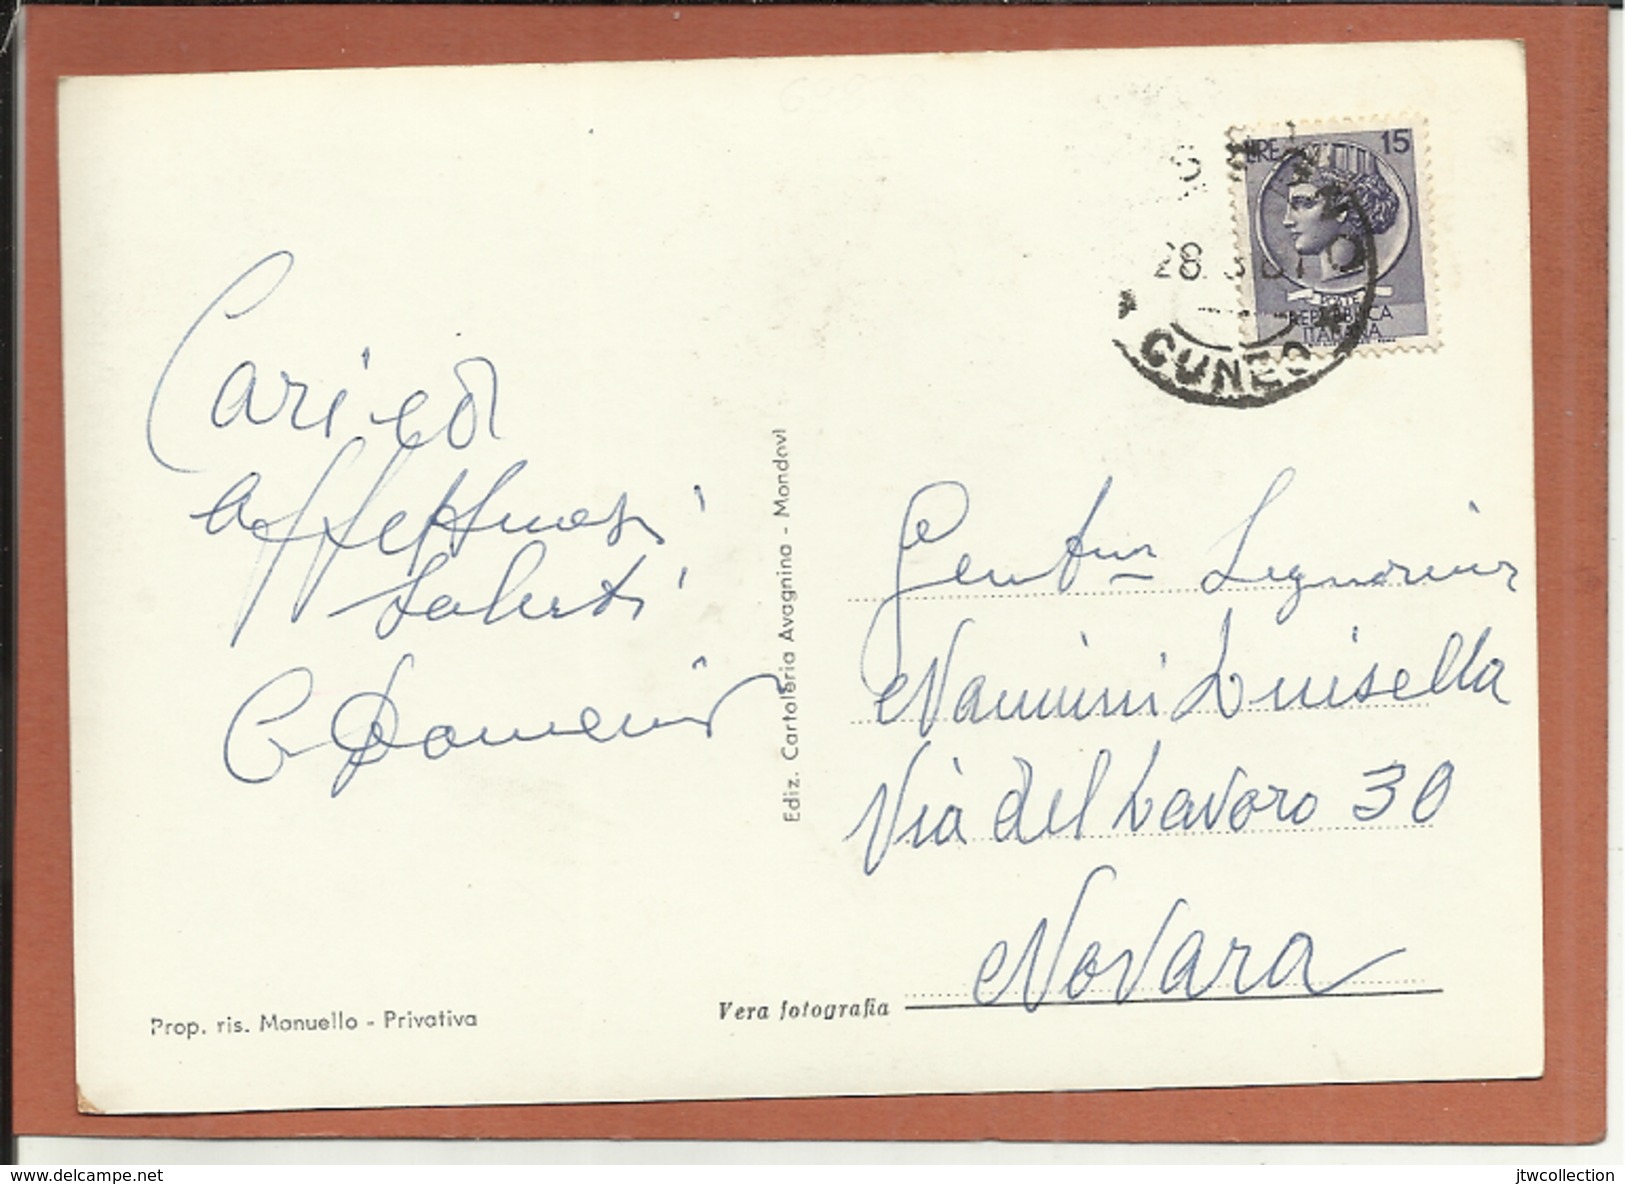 Cari ed
affettuosi
saluti
C. Domenico
Prop. ris. Manuello - Privativa
Ediz. Cartoleria Avagnina - Mondovì
Vera fotografia
LIRE 15
POSTE
REPUBBLICA
ITALIANA
28
CUNEO
Gent.ma Signorina
Nannini Luisella
Via del Lavoro 30
Novara
https://www.delcampe.net
jtwcollection